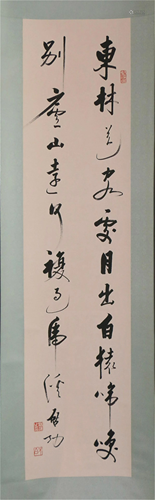 東林送客處月出白猿啼笑
別廬山遠何須過虎
溪 啟功